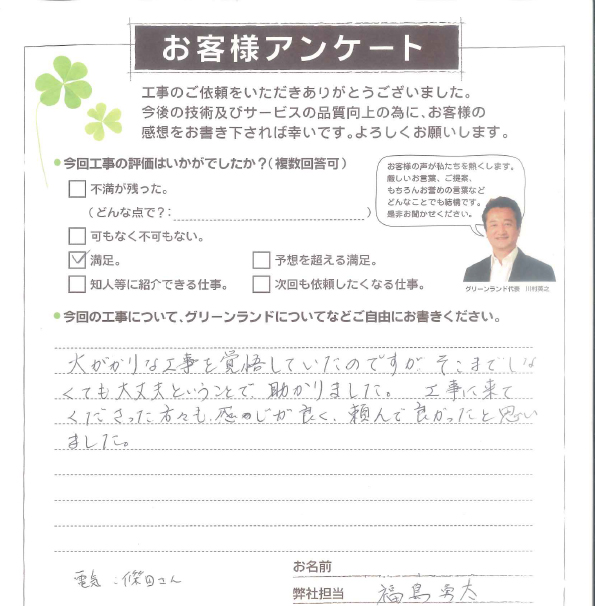 お客様アンケート
工事のご依頼をいただきありがとうございました。
今後の技術及びサービスの品質向上の為に、お客様の
感想をお書き下されば幸いです。よろしくお願いします。
●今回工事の評価はいかがでしたか？（複数回答可）
お客様の声が私たちを熱くします。
厳しいお言葉、ご提案、
もちろんお誉めの言葉など
どんなことでも結構です。
是非お聞かせください。
不満が残った。
（どんな点で？：　　　）
可もなく不可もない。
満足。　予想を超える満足。
知人等に紹介できる仕事。　次回も依頼したくなる仕事。
グリーンランド代表　川村英之
●今回の工事について、グリーンランドについてなどご自由にお書きください。
大がかりな工事を覚悟していたのですが そこまでしな
くても大丈夫ということで、助かりました。 工事に来て
くださった方々も、感のじが良く、頼んで良かったと思い
ました。
電気：保田さん
お名前
弊社担当　福島勇太